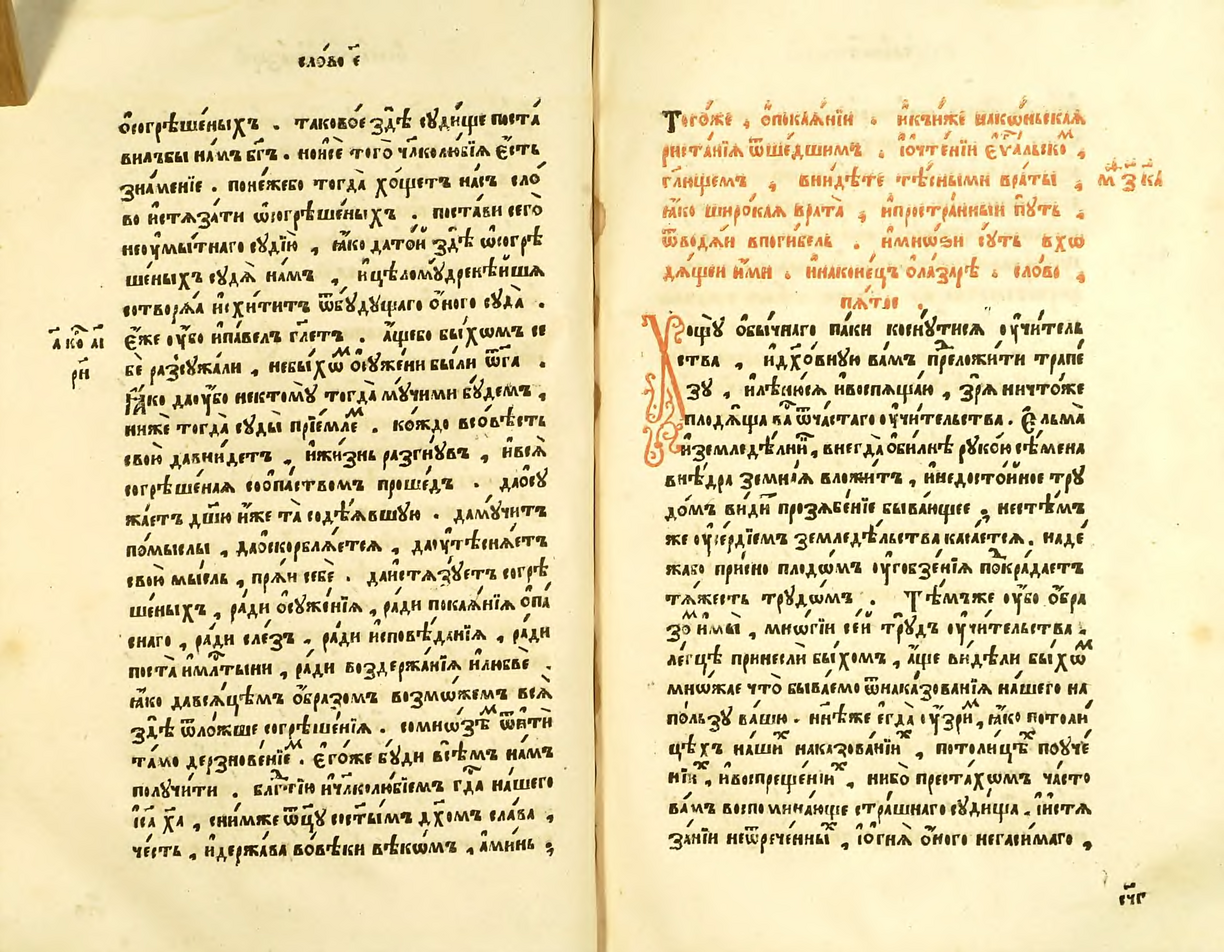 сло́во є҃
ѡ҆согрѣше́ныхъ . таково́е здѣ̀ сꙋди́ще поста́
вилъбы на́мъ бг҃ъ . ноисе того̀ чл҃колю́бїѧ є҆́сть
зна́менїе . поне́жебо тогда̀ хо́щетъ на́съ сло́
во и҆стѧза́ти ѡ҆согрѣше́ныхъ . поста́ви сего̀
неꙋмы́тнаго сꙋдїю̀ , ꙗ҆́ко дато́й здѣ̀ ѡ҆согрѣ
ше́ныхъ сꙋдѧ̀ на́мъ , и҆цѣломꙋ́дренѣйшѧ
сотворѧ́ѧ и҆схи́титъ ѿбꙋ́дꙋщаго о҆́ного сꙋда̀ .
є҆́же ᲂу҆́бо и҆па́велъ гл҃етъ . а҆́щебо бы́хѡмъ се
бѐ разсꙋжа́ли , небы́хѡⷨ ѡ҆сꙋже́ни бы́ли ѿбг҃а .
ꙗ҆́ко даᲂу҆́бо нектомꙋ̀ тогда̀ мꙋ́чими бꙋ́демъ ,
ниже тогда̀ сꙋды̀ прїе́млеⷨ . ко́ждо всо́вѣсть
свою̀ давни́детъ , и҆жи́знь разгнꙋ́въ , и҆всѧ̀
согрѣше́наѧ соопа́ствомъ проше́дъ . даѡ҆сꙋ
жа́етъ дш҃ꙋ и҆́же та̀ содѣ́ѧвшꙋю . дамꙋ́читъ
по́мыслы , даѡ҆скорблѧ́етсѧ , даᲂу҆тѣснѧ́етъ
свою̀ мы́сль , прѧ́йи себѐ . даи҆стѧзꙋ́етъ согрѣ
ше́ныхъ , ра́ди ѡ҆сꙋже́нїѧ , ра́ди покаѧ́нїѧ ѻ҆па́
снаго , ра́ди сле́зъ , ра́ди и҆сповѣ́данїѧ , ра́ди
поста̀ и҆мл҃тыни , ра́ди воздержа́нїѧ и҆любвѐ .
ꙗ҆́ко давсѧ́цѣмъ ѻ҆́бразомъ возмо́жемъ всѧ̀
здѣ̀ ѿло́жше согрѣше́нїѧ . сомно́зѣⷨ ѿитѝ
та́мо дерзнове́нїеⷨ . є҆го́же бꙋ́ди всѣ́мъ на́мъ
полꙋчи́ти . блгⷣтїю и҆чл҃колю́бїемъ гдⷭ҇а на́шего
і҆с҃а хⷭ҇а , сни́мже ѿц҃ꙋ состы́мъ дх҃омъ сла́ва ,
че́сть , и҆держа́ва вове́ки вѣко́мъ , а҆ми́нь ,
а҃ ко҃ л҃і
рн҃
Того́же , ѡ҆покаѧ́нїи . и҆кни́же наконьскаѧ
риста́нїѧ ѿше́дшимъ . і҆очте́нїи є҆ѵⷢ҇льскоⷨ ,
гл҃ющемъ , вни́дѣте тѣ́сными враты̀ ,
ꙗ҆́ко широ́каѧ врата̀ , и҆простра́нныи пꙋ́ть ,
ѿводѧ́и впоги́бель . и҆мно́ѕи сꙋ́ть вхо
дѧ́щеи и҆́ми . и҆наконе́цъ ѡ҆ла́зарѣ . сло́во ,
пѧ́тое .
м҃ѳ з҃ ка҃
Хощꙋ̀ ѻ҆бы́чнаго па́ки косну́тисѧ ᲂу҆чи́тель
ства , и҆дх҃о́внꙋю ва́мъ преⷣложи́ти трапе́
зꙋ , и҆лѣню́сѧ и҆воспѧща́ю , зрѧ̀ ничто́же
плодѧ́ща ва́съ ѿча́стаго ᲂу҆чи́тельства . є҆льма̀
и҆земледѣ́лїи , внегда̀ ѻ҆би́лнѣ рꙋко́ю сѣ́мена
внѣ́дра земна́ѧ вложи́тъ , и҆недосто́йное трꙋ
до́мъ ви́диⷨ прозѧбе́нїе быва́ющее , нестѣ́мъ
же ᲂу҆се́рдїемъ земледѣ́льства каса́етсѧ . наде́
жабо при́сно плодо́мъ ᲂу҆гобзе́нїѧ поⷣкра́даетъ
тѧ́жесть трꙋдо́мъ . Тѣ́мъже ᲂу҆́бо ѻ҆́бра
зоⷨ и҆мы̀ , мно́гїи се́й трꙋ́дъ ᲂу҆чи́тельства .
ле́гцѣ принеслѝ бы́хомъ , а҆́ще ви́дѣли бы́хѡⷨ
мно́жае что̀ быва́емо ѿнаказова́нїѧ на́шего на
по́льзꙋ ва́шꙋ . нн҃ѣже є҆гда̀ ᲂу҆зриⷨ , ꙗ҆́ко потоли́
цѣхъ на́шиⷯ наказова́нїиⷯ , потоли́цѣⷯ поꙋче́
нїиⷯ , и҆воспреще́нїиⷯ , ни́бо преста́хѡмъ ча́сто
ва́мъ воспомина́юще стра́шнаго сꙋди́ща . и҆и҆стѧ
за́нїи неѿрече́нныⷯ , і҆о҆гнѧ̀ ѻ҆́ного негаси́маго ,
єч҃г